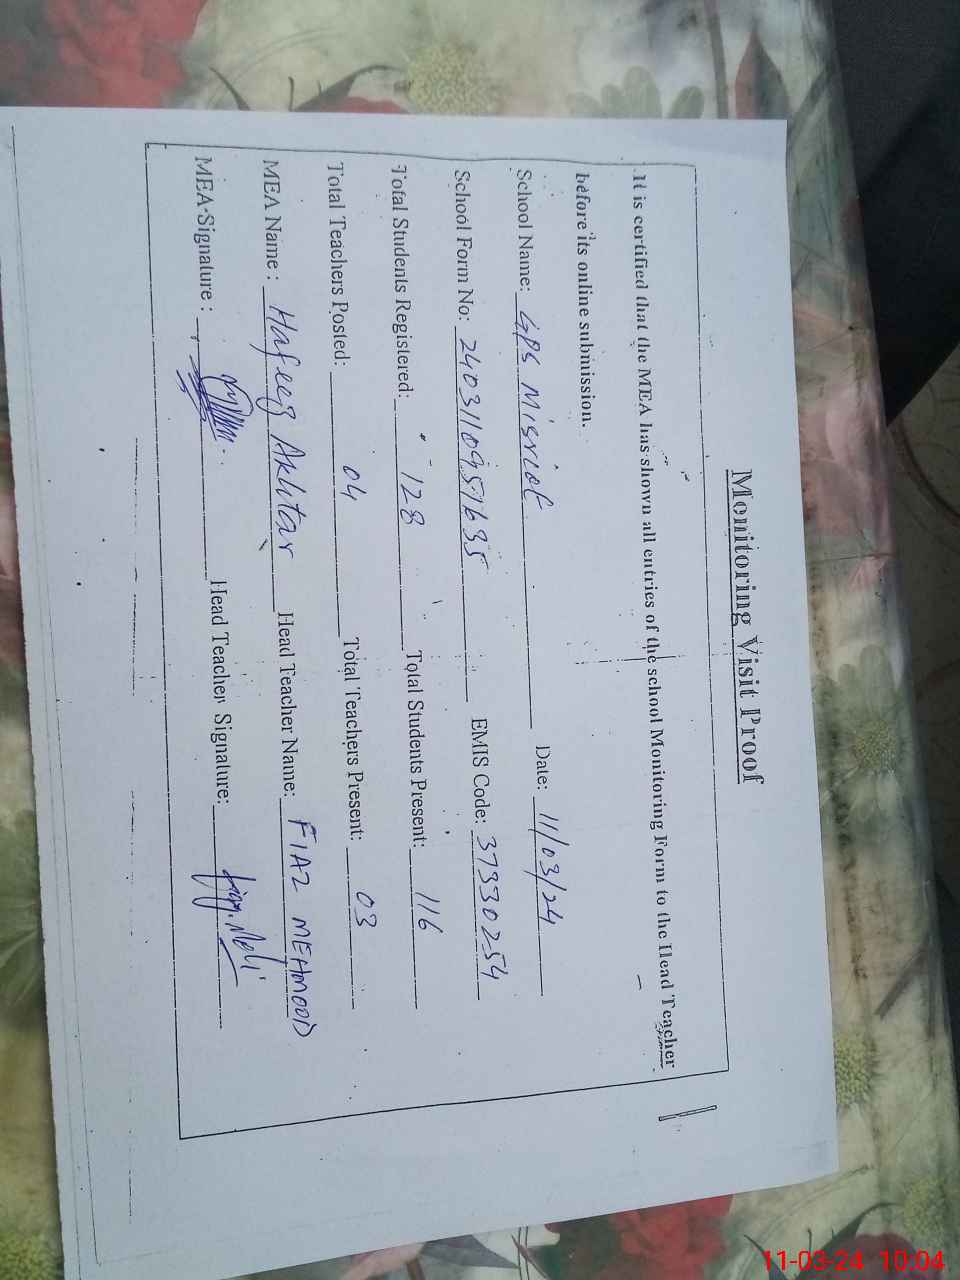 Monitoring Visit Proof
It is certified that the MEA has shown all entries of the school Monitoring Form to the Head Teacher
before its online submission.
School Name: GPS Misrial Date: 11/03/24
School Form No: 2403110951635 EMIS Code: 37330254
Total Students Registered: 128 Total Students Present: 116
Total Teachers Posted: 04 Total Teachers Present: 03
MEA Name : Hafeez Akhtar Head Teacher Name: FIAZ MEHMOOD
MEA-Signature : Head Teacher Signature:
11-03-24 10:04